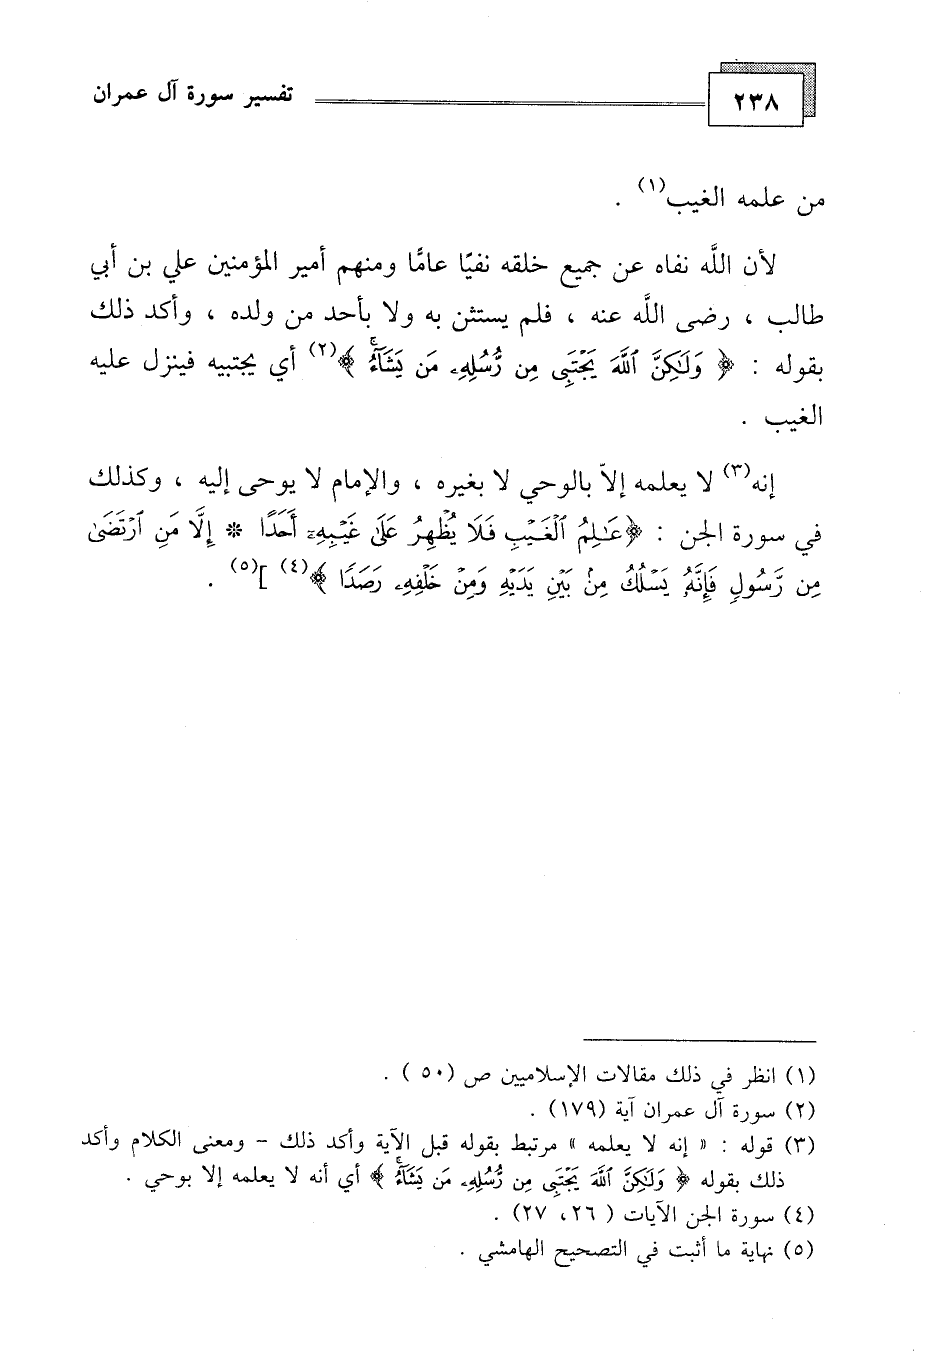 ٢٣٨ تفسير سورة آل عمران
من علمه الغيب(١) .
لأن اللَّه نفاه عن جميع خلقه نفيًا عامًّا ومنهم أمير المؤمنين علي بن أبي
طالب ، رضى اللَّه عنه ، فلم يستثن به ولا بأحد من ولده ، وأكد ذلك
بقوله : ﴿ وَلَٰكِنَّ ٱللَّهَ يَجْتَبِى مِن رُّسُلِهِۦ مَن يَشَآءُ ﴾(٢) أي يجتبيه فينزل عليه
الغيب .
إنه(٣) لا يعلمه إلاّ بالوحي لا بغيره ، والإمام لا يوحى إليه ، وكذلك
في سورة الجن : ﴿عَٰلِمُ ٱلْغَيْبِ فَلَا يُظْهِرُ عَلَىٰ غَيْبِهِۦٓ أَحَدًا * إِلَّا مَنِ ٱرْتَضَىٰ
مِن رَّسُولٍ فَإِنَّهُۥ يَسْلُكُ مِنۢ بَيْنِ يَدَيْهِ وَمِنْ خَلْفِهِۦ رَصَدًا ﴾(٤) ](٥) .
(١) انظر في ذلك مقالات الإسلاميين ص (٥٠ ) .
(٢) سورة آل عمران آية (١٧٩) .
(٣) قوله : « إنه لا يعلمه » مرتبط بقوله قبل الآية وأكد ذلك – ومعنى الكلام وأكد
ذلك بقوله ﴿ وَلَٰكِنَّ ٱللَّهَ يَجْتَبِى مِن رُّسُلِهِۦ مَن يَشَآءُ ﴾ أي أنه لا يعلمه إلا بوحي .
(٤) سورة الجن الآيات ( ٢٦، ٢٧) .
(٥) نهاية ما أثبت في التصحيح الهامشي .